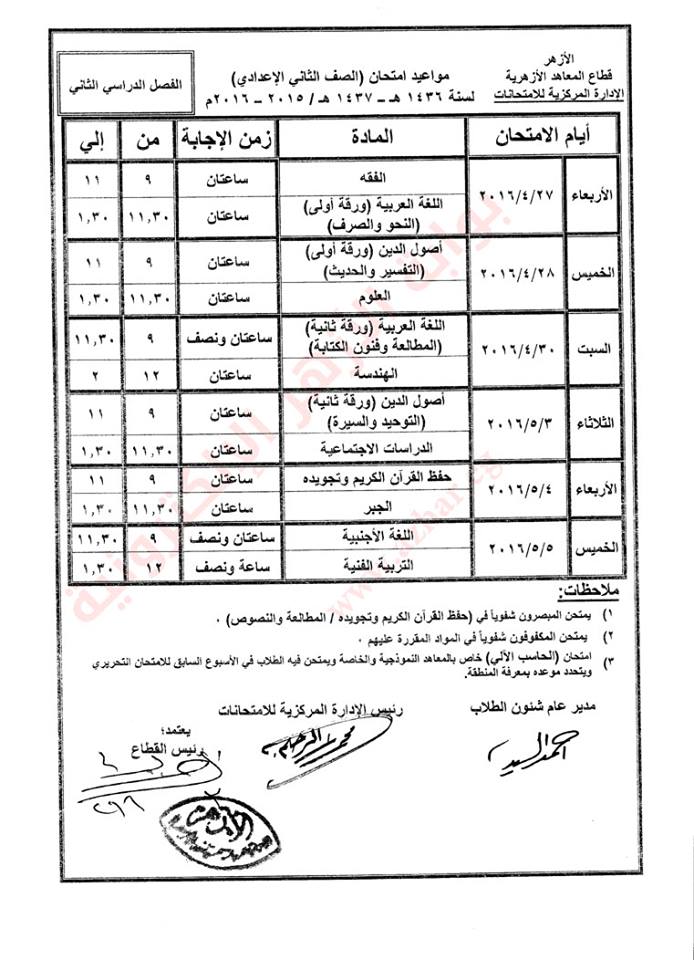 الأزهر
قطاع المعاهد الأزهرية
الإدارة المركزية للامتحانات
مواعيد امتحان (الصف الثاني الإعدادي)
لسنة ١٤٣٦ هـ – ١٤٣٧ هـ / ٢٠١٥ – ٢٠١٦م
الفصل الدراسي الثاني
أيام الامتحان المادة زمن الإجابة من إلي
الأربعاء ٢٠١٦/٤/٢٧ الفقه ساعتان ٩ ١١
اللغة العربية (ورقة أولى) (النحو والصرف) ساعتان ١١,٣٠ ١,٣٠
الخميس ٢٠١٦/٤/٢٨ أصول الدين (ورقة أولى) (التفسير والحديث) ساعتان ٩ ١١
العلوم ساعتان ١١,٣٠ ١,٣٠
السبت ٢٠١٦/٤/٣٠ اللغة العربية (ورقة ثانية) (المطالعة وفنون الكتابة) ساعتان ونصف ٩ ١١,٣٠
الهندسة ساعتان ١٢ ٢
الثلاثاء ٢٠١٦/٥/٣ أصول الدين (ورقة ثانية) (التوحيد والسيرة) ساعتان ٩ ١١
الدراسات الاجتماعية ساعتان ١١,٣٠ ١,٣٠
الأربعاء ٢٠١٦/٥/٤ حفظ القرآن الكريم وتجويده ساعتان ٩ ١١
الجبر ساعتان ١١,٣٠ ١,٣٠
الخميس ٢٠١٦/٥/٥ اللغة الأجنبية ساعتان ونصف ٩ ١١,٣٠
التربية الفنية ساعة ونصف ١٢ ١,٣٠
ملاحظات:
١) يمتحن المبصرون شفوياً في (حفظ القرآن الكريم وتجويده / المطالعة والنصوص) .
٢) يمتحن المكفوفون شفوياً في المواد المقررة عليهم .
٣) امتحان (الحاسب الآلي) خاص بالمعاهد النموذجية والخاصة ويمتحن فيه الطلاب في الأسبوع السابق للامتحان التحريري
ويتحدد موعده بمعرفة المنطقة.
مدير عام شئون الطلاب
رئيس الإدارة المركزية للامتحانات
يعتمد؛
رئيس القطاع
أحمد السيد
بوابة الأزهر الإلكترونية